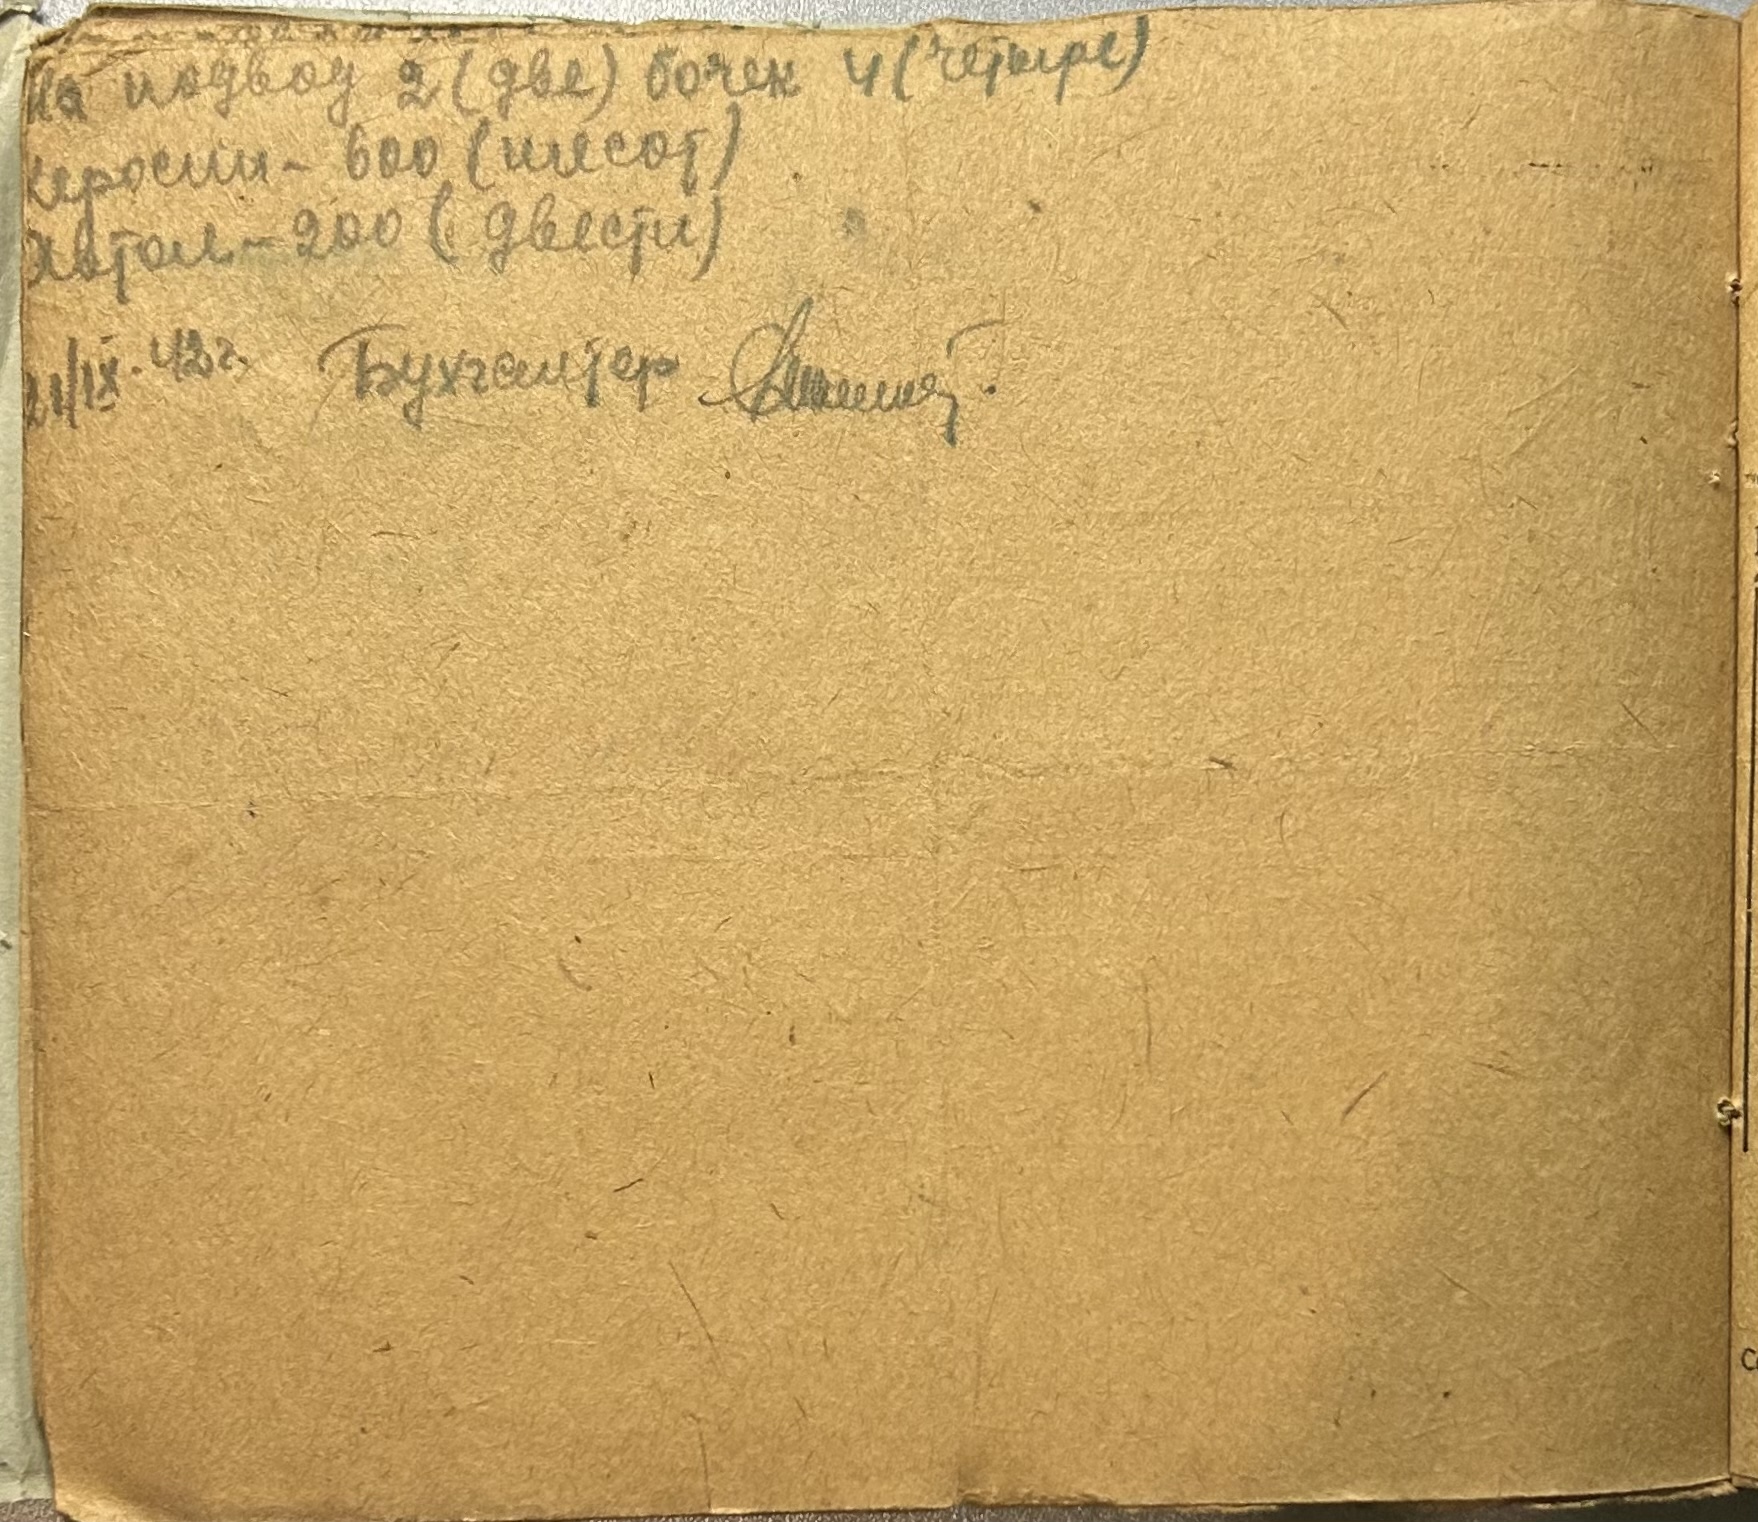 На подвод 2 (две) бочек 4 (четыре)
керосин - 600 (шесот)
Автол - 200 (двести)
21/IX. 42 г. Бухгалтер